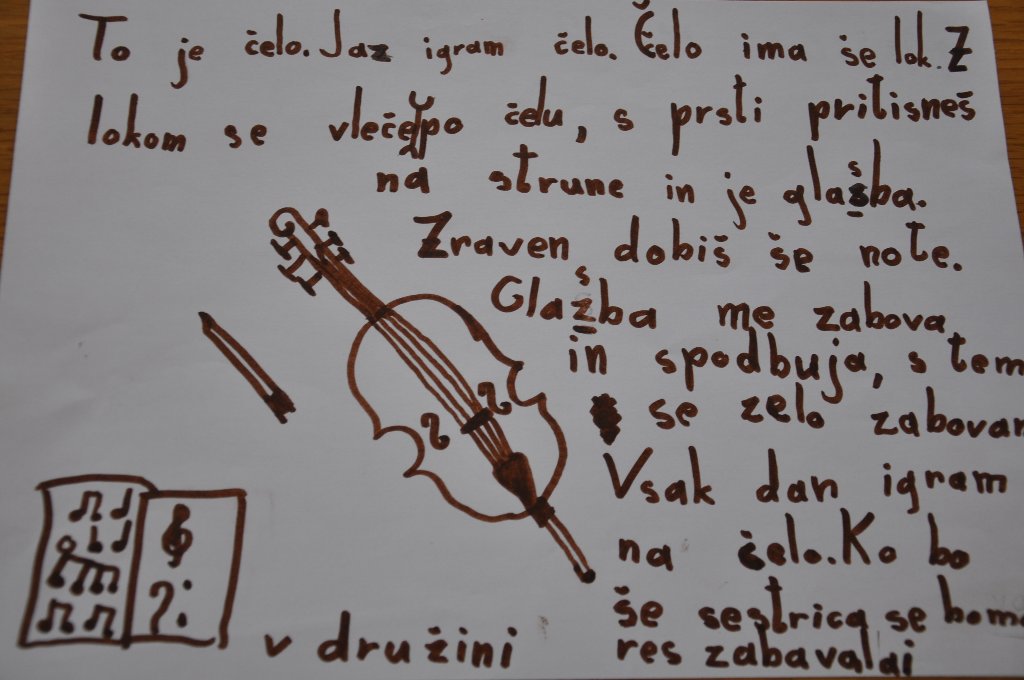 To je čelo. Jaz igram čelo. Čelo ima še lok. Z
lokom se vleče po čelu, s prsti pritisneš
na strune in je glasba.
Zraven dobiš še note.
Glasba me zabova
in spodbuja, s tem
se zelo zabovam
Vsak dan igram
na čelo. Ko bo
še sestrica se bomo
v družini res zabavalai